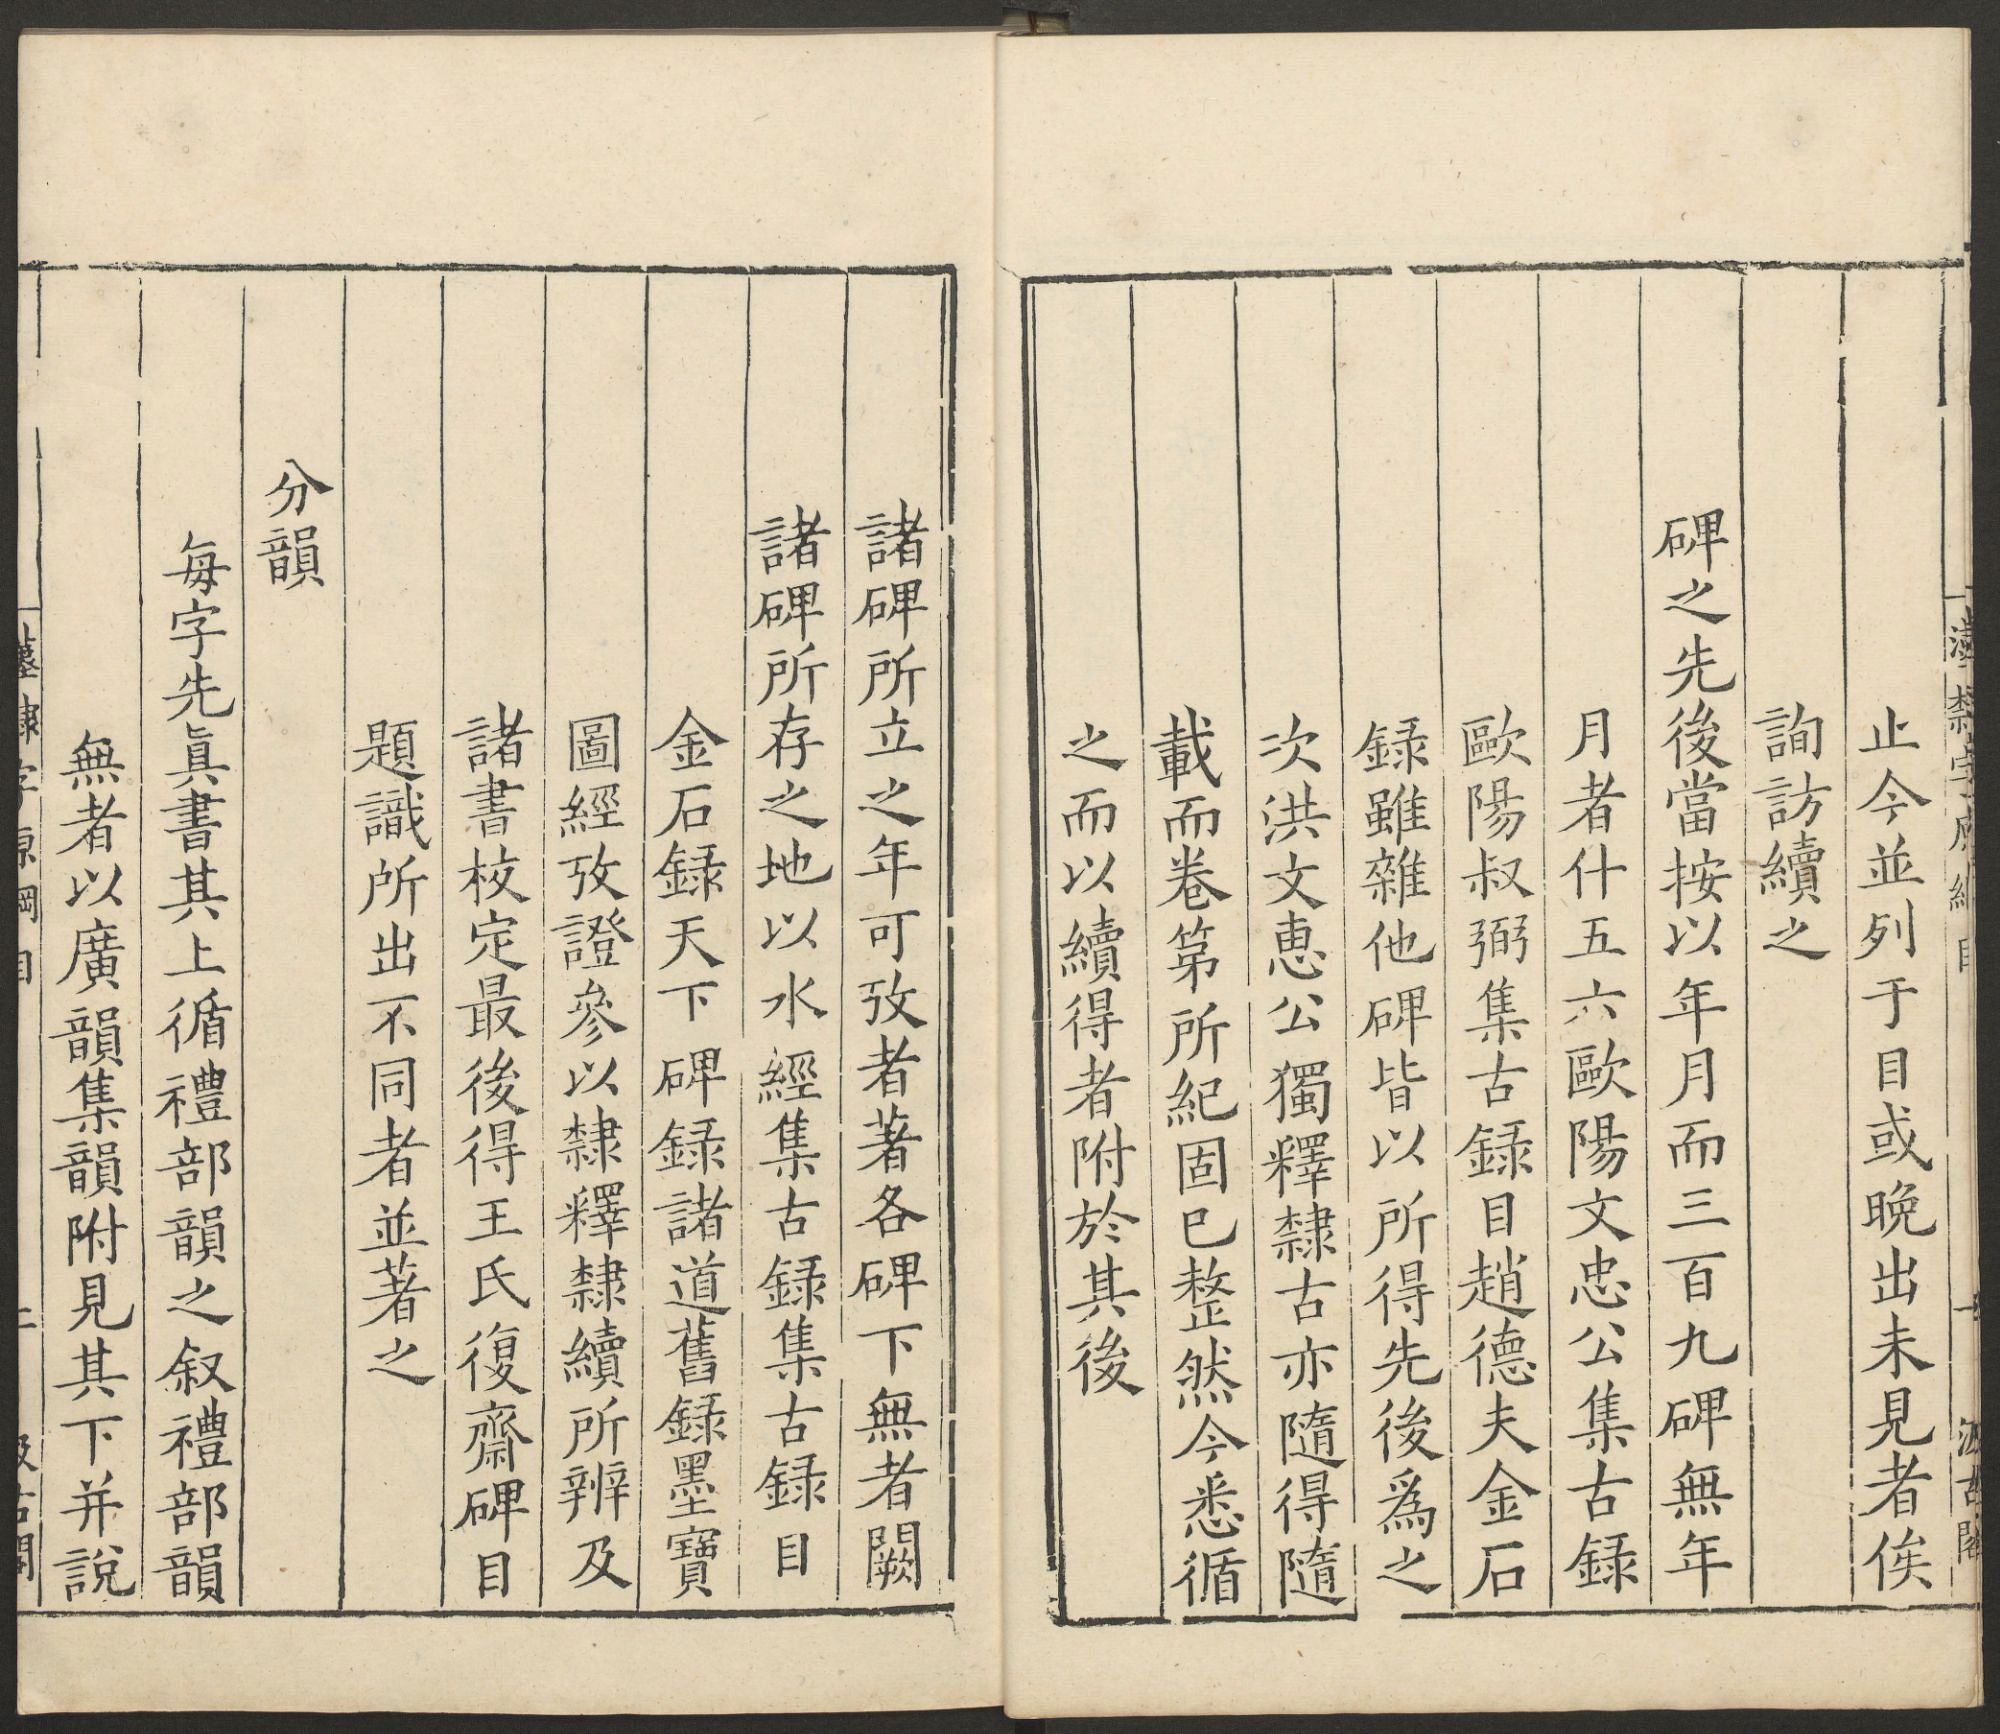 漢隸字原綱目
一
汲古閣
止今並列于目或晚出未見者俟
詢訪續之
碑之先後當按以年月而三百九碑無年
月者什五六歐陽文忠公集古録
歐陽叔弼集古録目趙德夫金石
録雖雜他碑皆以所得先後爲之
次洪文惠公獨釋隸古亦隨得隨
載而卷第所紀固已整然今悉循
之而以續得者附於其後
諸碑所立之年可攷者著各碑下無者闕
諸碑所存之地以水經集古録集古録目
金石録天下碑録諸道舊録墨寶
圖經攷證參以隸釋隸續所辨及
諸書校定最後得王氏復齋碑目
題識所出不同者並著之
分韻
每字先眞書其上循禮部韻之叙禮部韻
無者以廣韻集韻附見其下并說
漢隸字原綱目
二
汲古閣